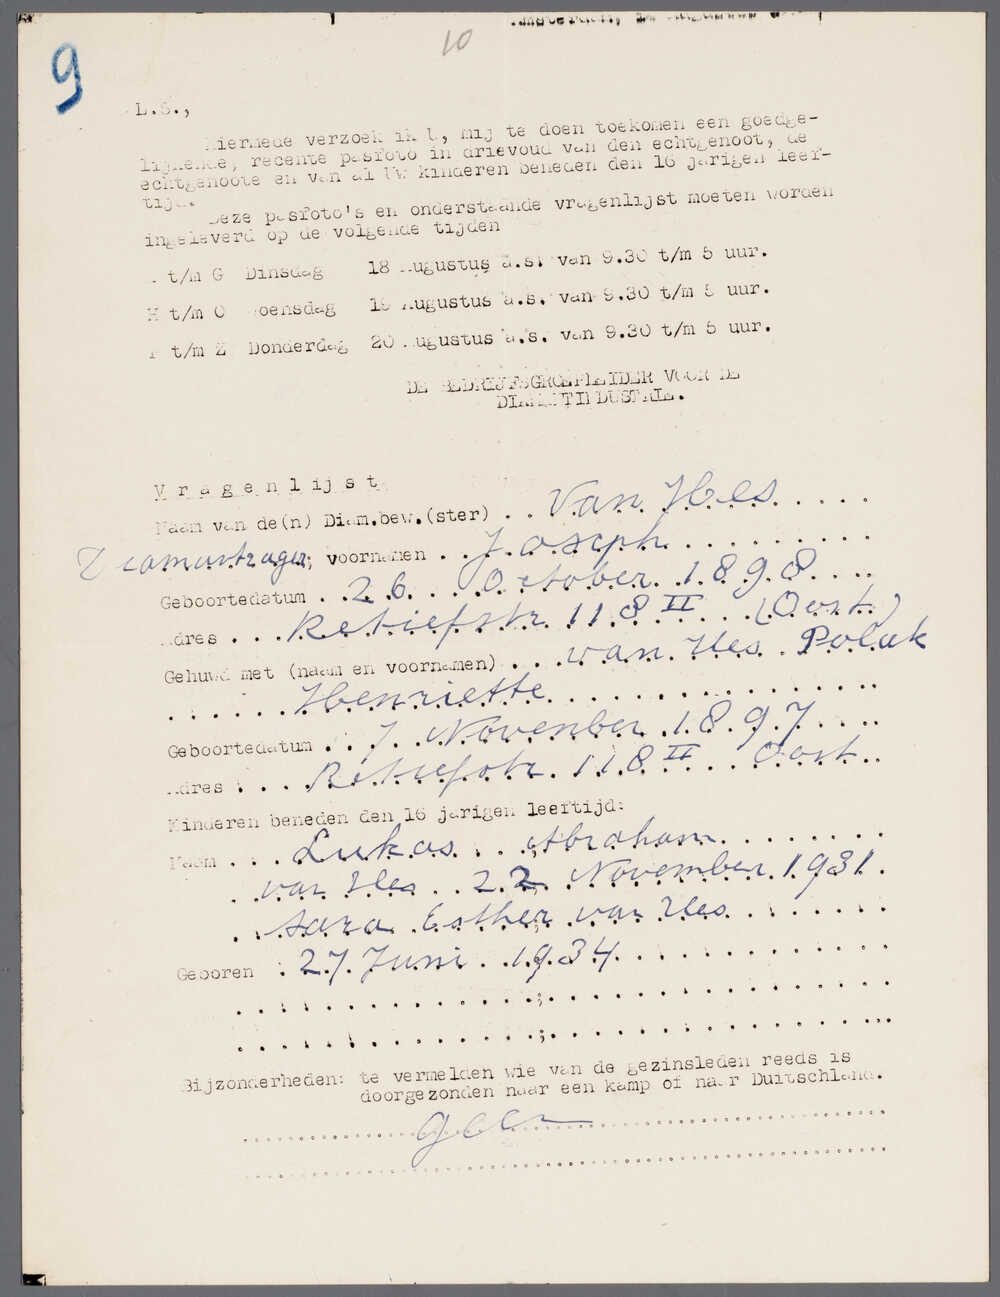 9
10
L.S.,
Hiermede verzoek ik U, mij te doen toekomen een goedge-
lijkende, recente pasfoto in drievoud van den echtgenoot, de
echtgenoote en van al Uw kinderen beneden den 16 jarigen leef-
tijd.
Deze pasfoto's en onderstaande vragenlijst moeten worden
ingeleverd op de volgende tijden
t/m G Dinsdag 18 Augustus a.s. van 9.30 t/m 5 uur.
H t/m O Woensdag 19 Augustus a.s. van 9.30 t/m 5 uur.
P t/m Z Donderdag 20 Augustus a.s. van 9.30 t/m 5 uur.
DE BEDRIJFSGROEPLEIDER VOOR DE
DIAMANTINDUSTRIE.
Vragenlijst
Naam van de(n) Diam.bew.(ster) . . Van Hes . . . .
voornamen . . Joseph . . . . . . . . .
Geboortedatum . . 26 . . October 1898 . . . .
Adres . . . Retiefstr 118 II . . . (Oost)
Gehuwd met (naam en voornamen) . . . van Hes Polak
. . . . . . Henriette . . . . . . . . . . . . . . . .
Geboortedatum . . 7 November 1897 . . . .
Adres . . . . Retiefstr. 118 II . . . Oost . .
Kinderen beneden den 16 jarigen leeftijd:
Naam . . . Lukas . . . Abraham . . . . . . . .
. van Hes . . 22 November 1931 .
. . Sara Esther van Hes . . . . . . .
Geboren . 27 Juni . . 1934 . . . . . . . . . . . .
. . . . . . . . . . . . . ; . . . . . . . . . . . . . . .
. . . . . . . . . . . . . ; . . . . . . . . . . . . . . .
Bijzonderheden: te vermelden wie van de gezinsleden reeds is
doorgezonden naar een kamp of naar Duitschland.
geen